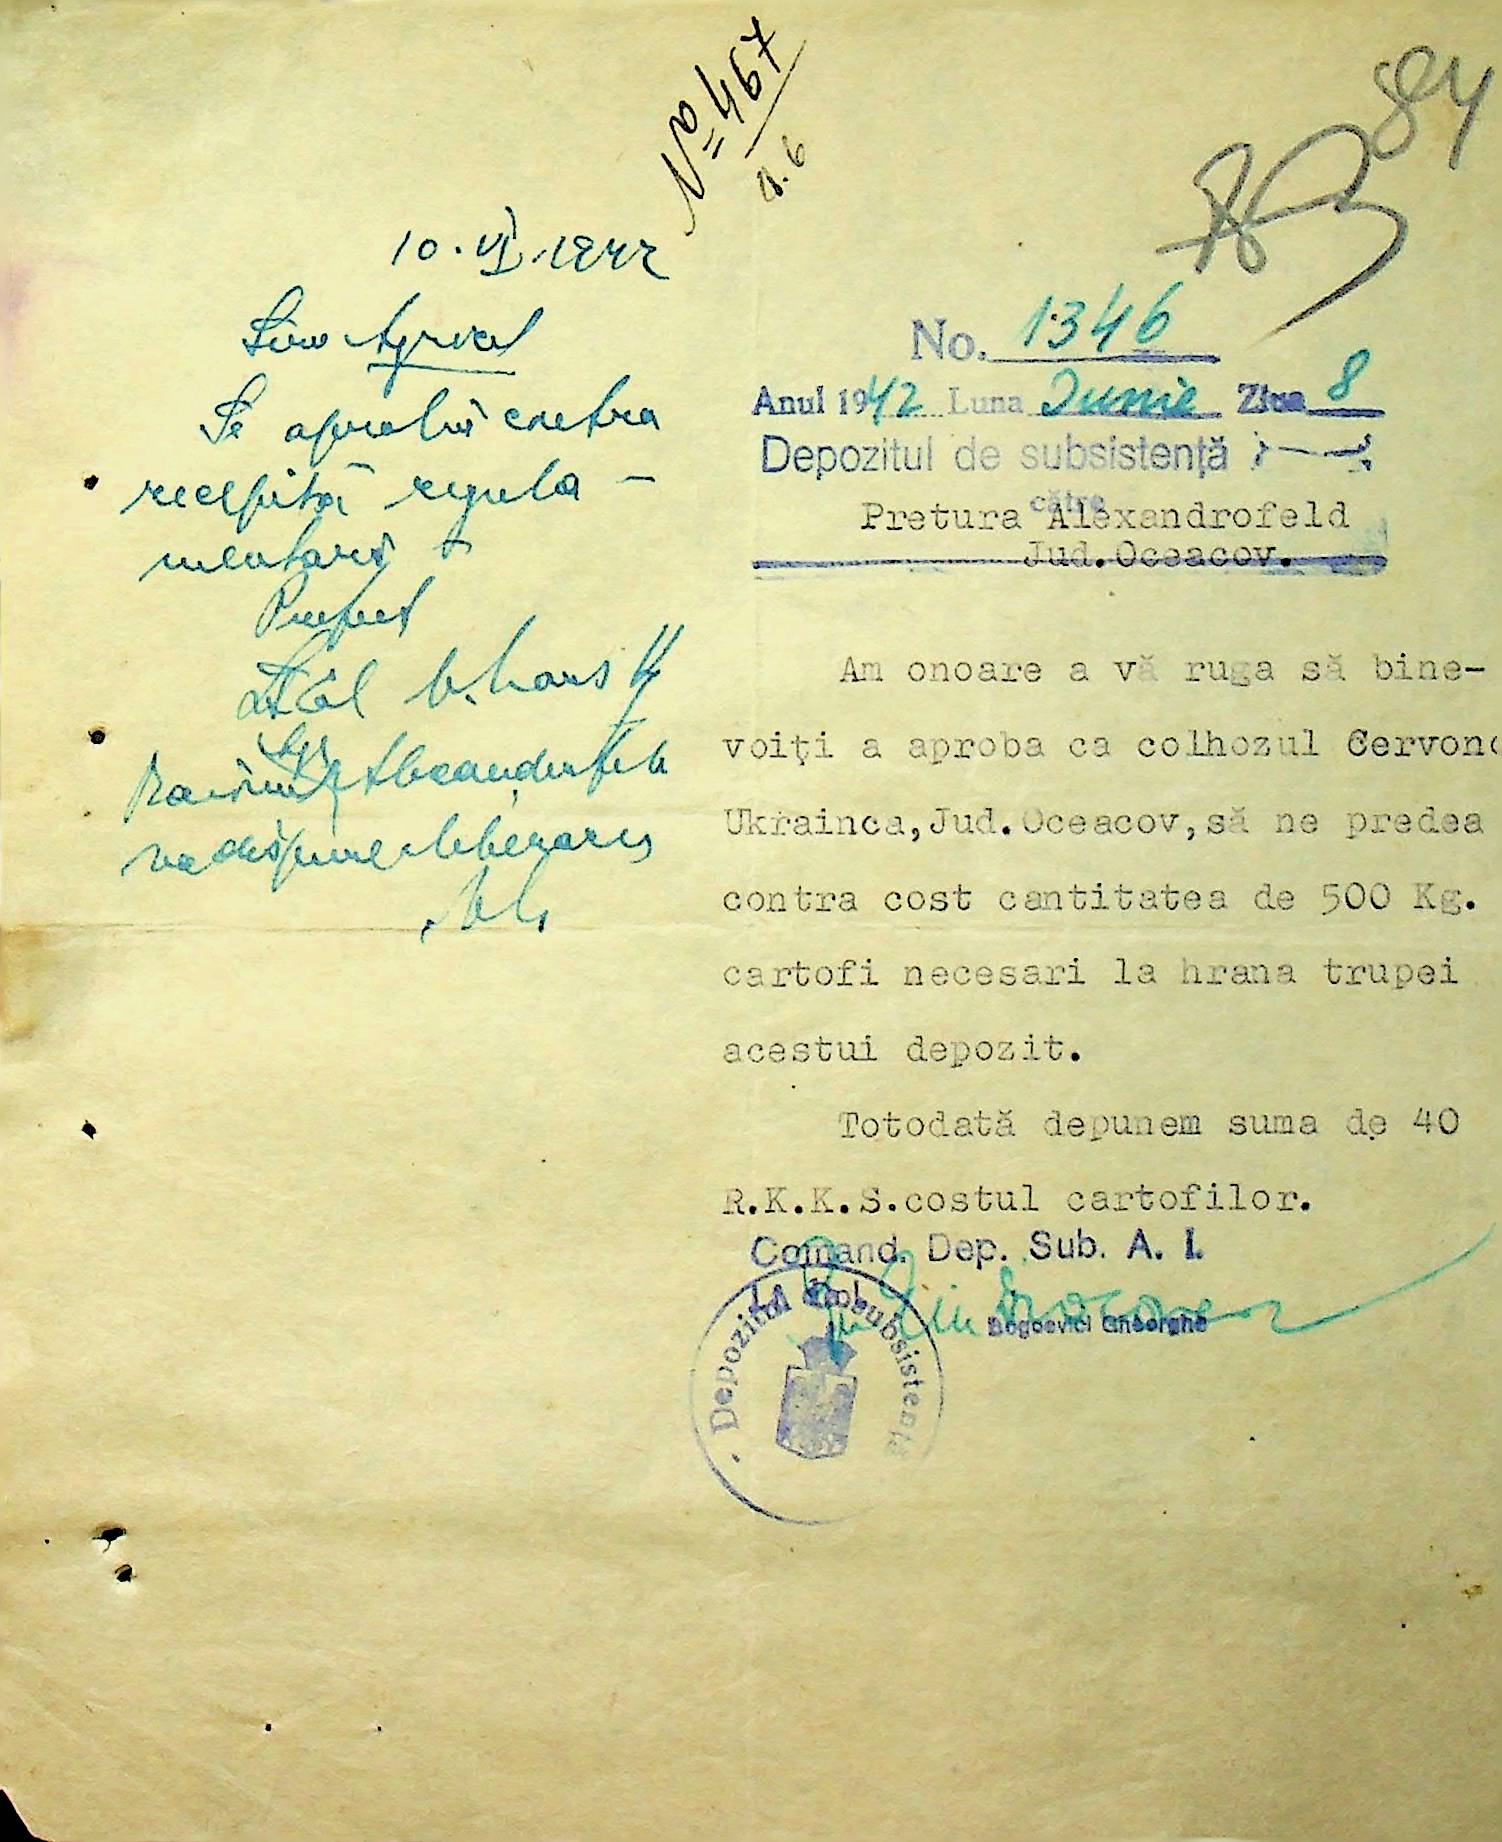 No 467
84
10.VI.1942
Se aprobă contra
recipisă regula-
mentară
Prefect
Lt Col
va dispune eliberarea
No. 1346
Anul 1942 Luna Iunie Ziua 8
Depozitul de subsistenţă
către
Pretura Alexandrofeld
Jud.Oceacov.
Am onoare a vă ruga să bine-
voiţi a aproba ca colhozul Cervono
Ukrainca,Jud.Oceacov,să ne predea
contra cost cantitatea de 500 Kg.
cartofi necesari la hrana trupei
acestui depozit.
Totodată depunem suma de 40
R.K.K.S.costul cartofilor.
Comand. Dep. Sub. A. I.
Bogoevici Gheorghe
Depozitul de Subsistenţă